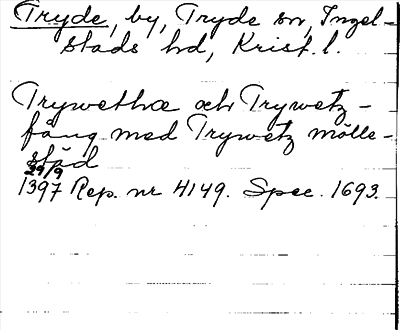 Tryde, by, Tryde sn, Ingel-
stads hd, Krist. l.
Trywethæ och Trywetz-
fång med Trywetz mölle-
städ
29/9
1397 Rep. nr 4149. Spec. 1693.